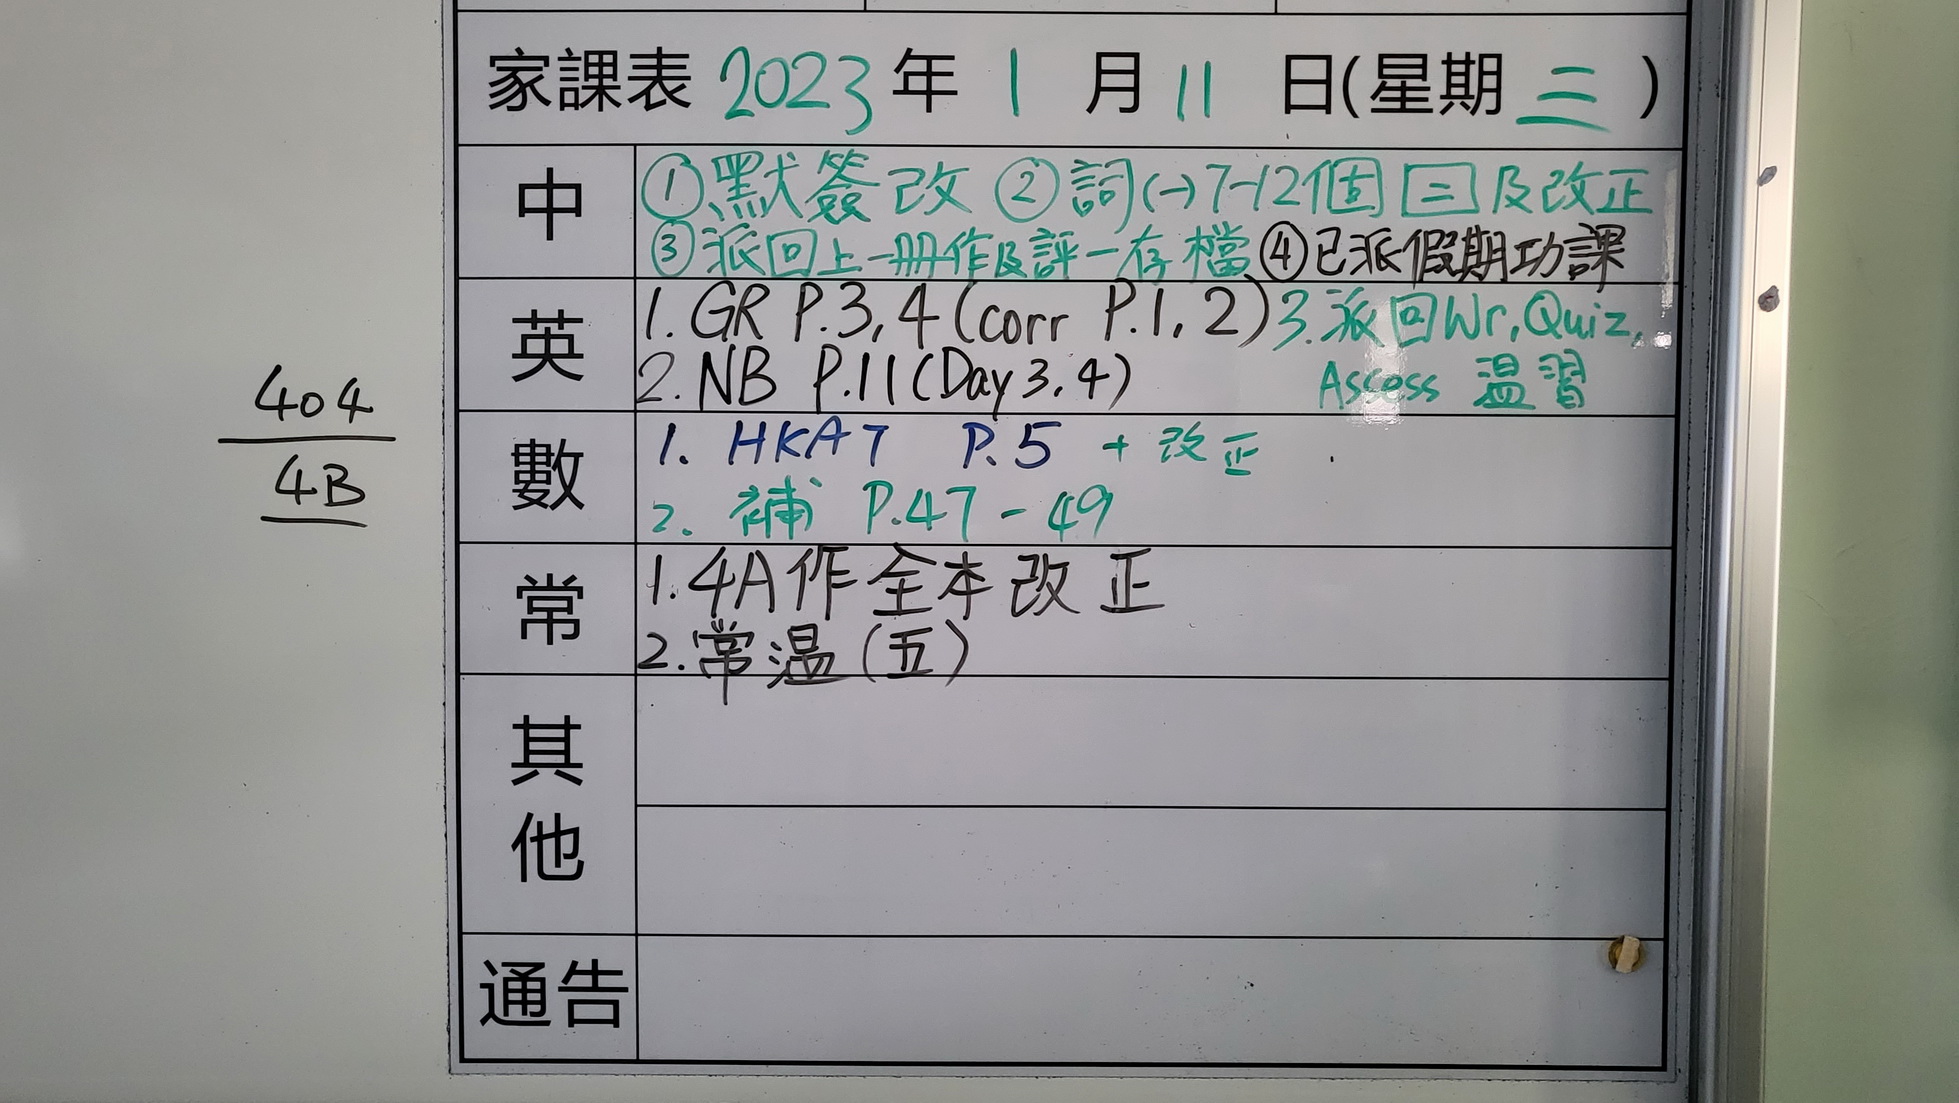 家課表 2023 年 1 月 11 日(星期 三 )
中
①默簽改 ②詞(一)7-12個 三 及改正
③派回上一冊作及評一存檔 ④已派假期功課
英
1. GR P.3,4 (corr P.1,2) 3.派回Wr,Quiz,
2. NB P.11 (Day 3,4) Assess 温習
404
4B
數
1. HKAT P.5 + 改正
2. 補 P.47-49
常
1.4A作全本改正
2.常温(五)
其他
通告